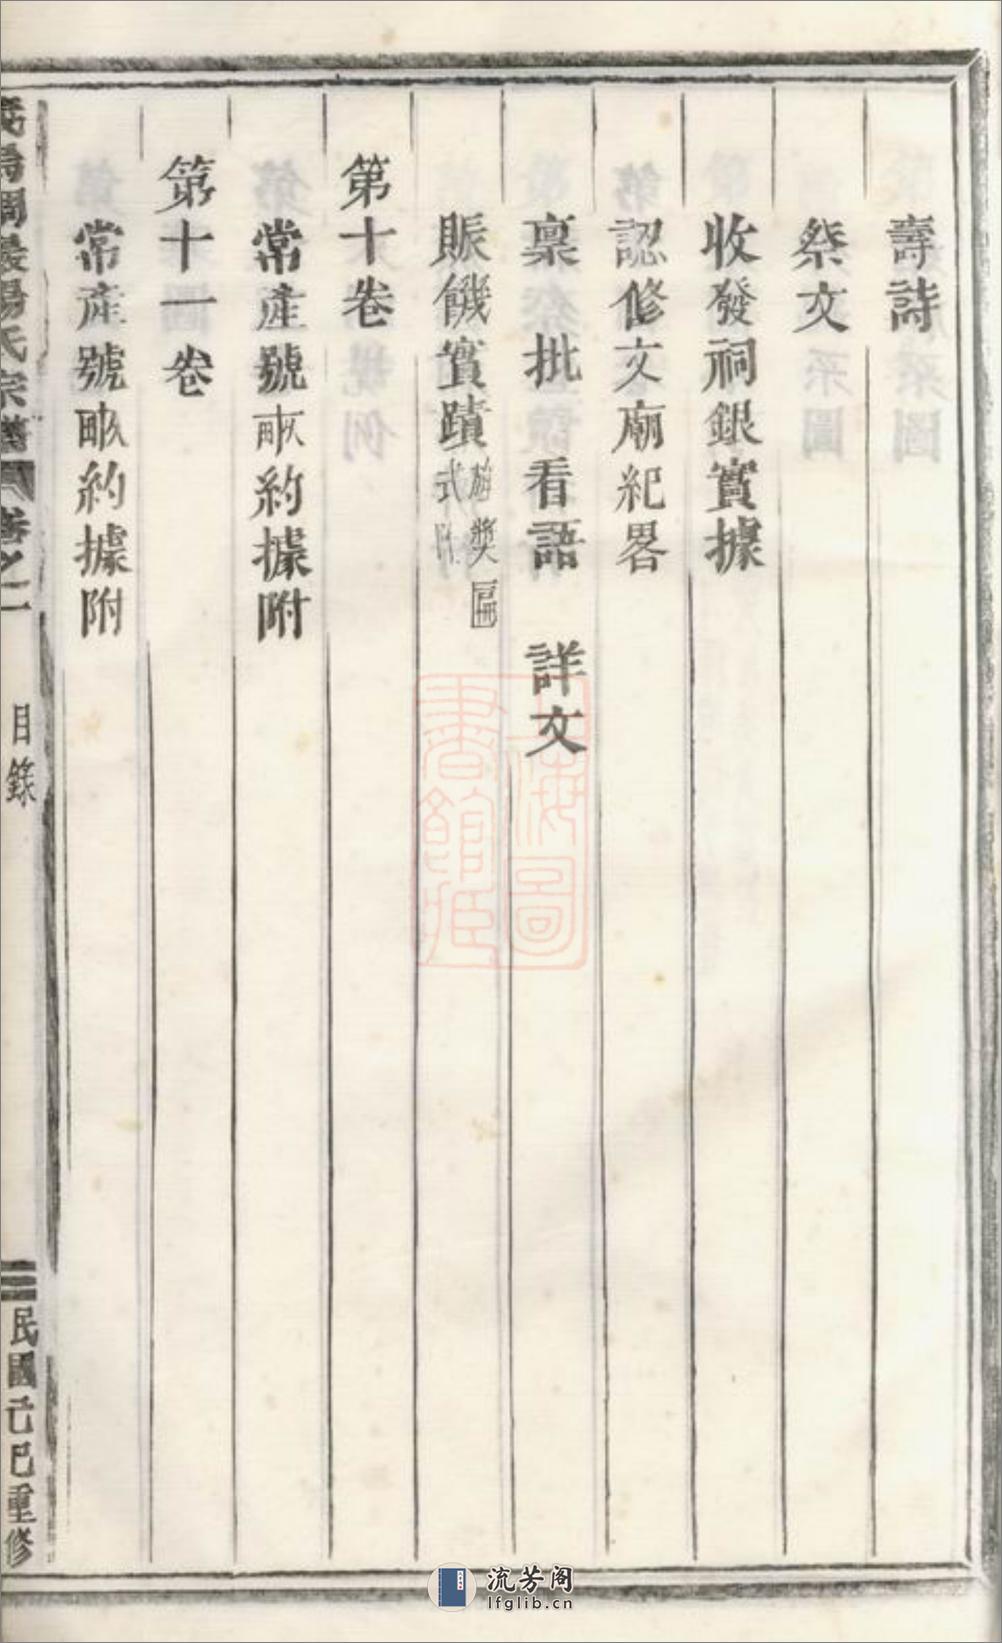 壽詩
祭文
收發祠銀實據
認修文廟紀畧
稟批看語 詳文
賑饑實蹟
獎匾
式附
第十卷
常產號畝約據附
第十一卷
常產號畝約據附
氏宗譜 卷之一 目錄 民國己巳重修
上海圖書館藏
流芳阁
lfglib.cn